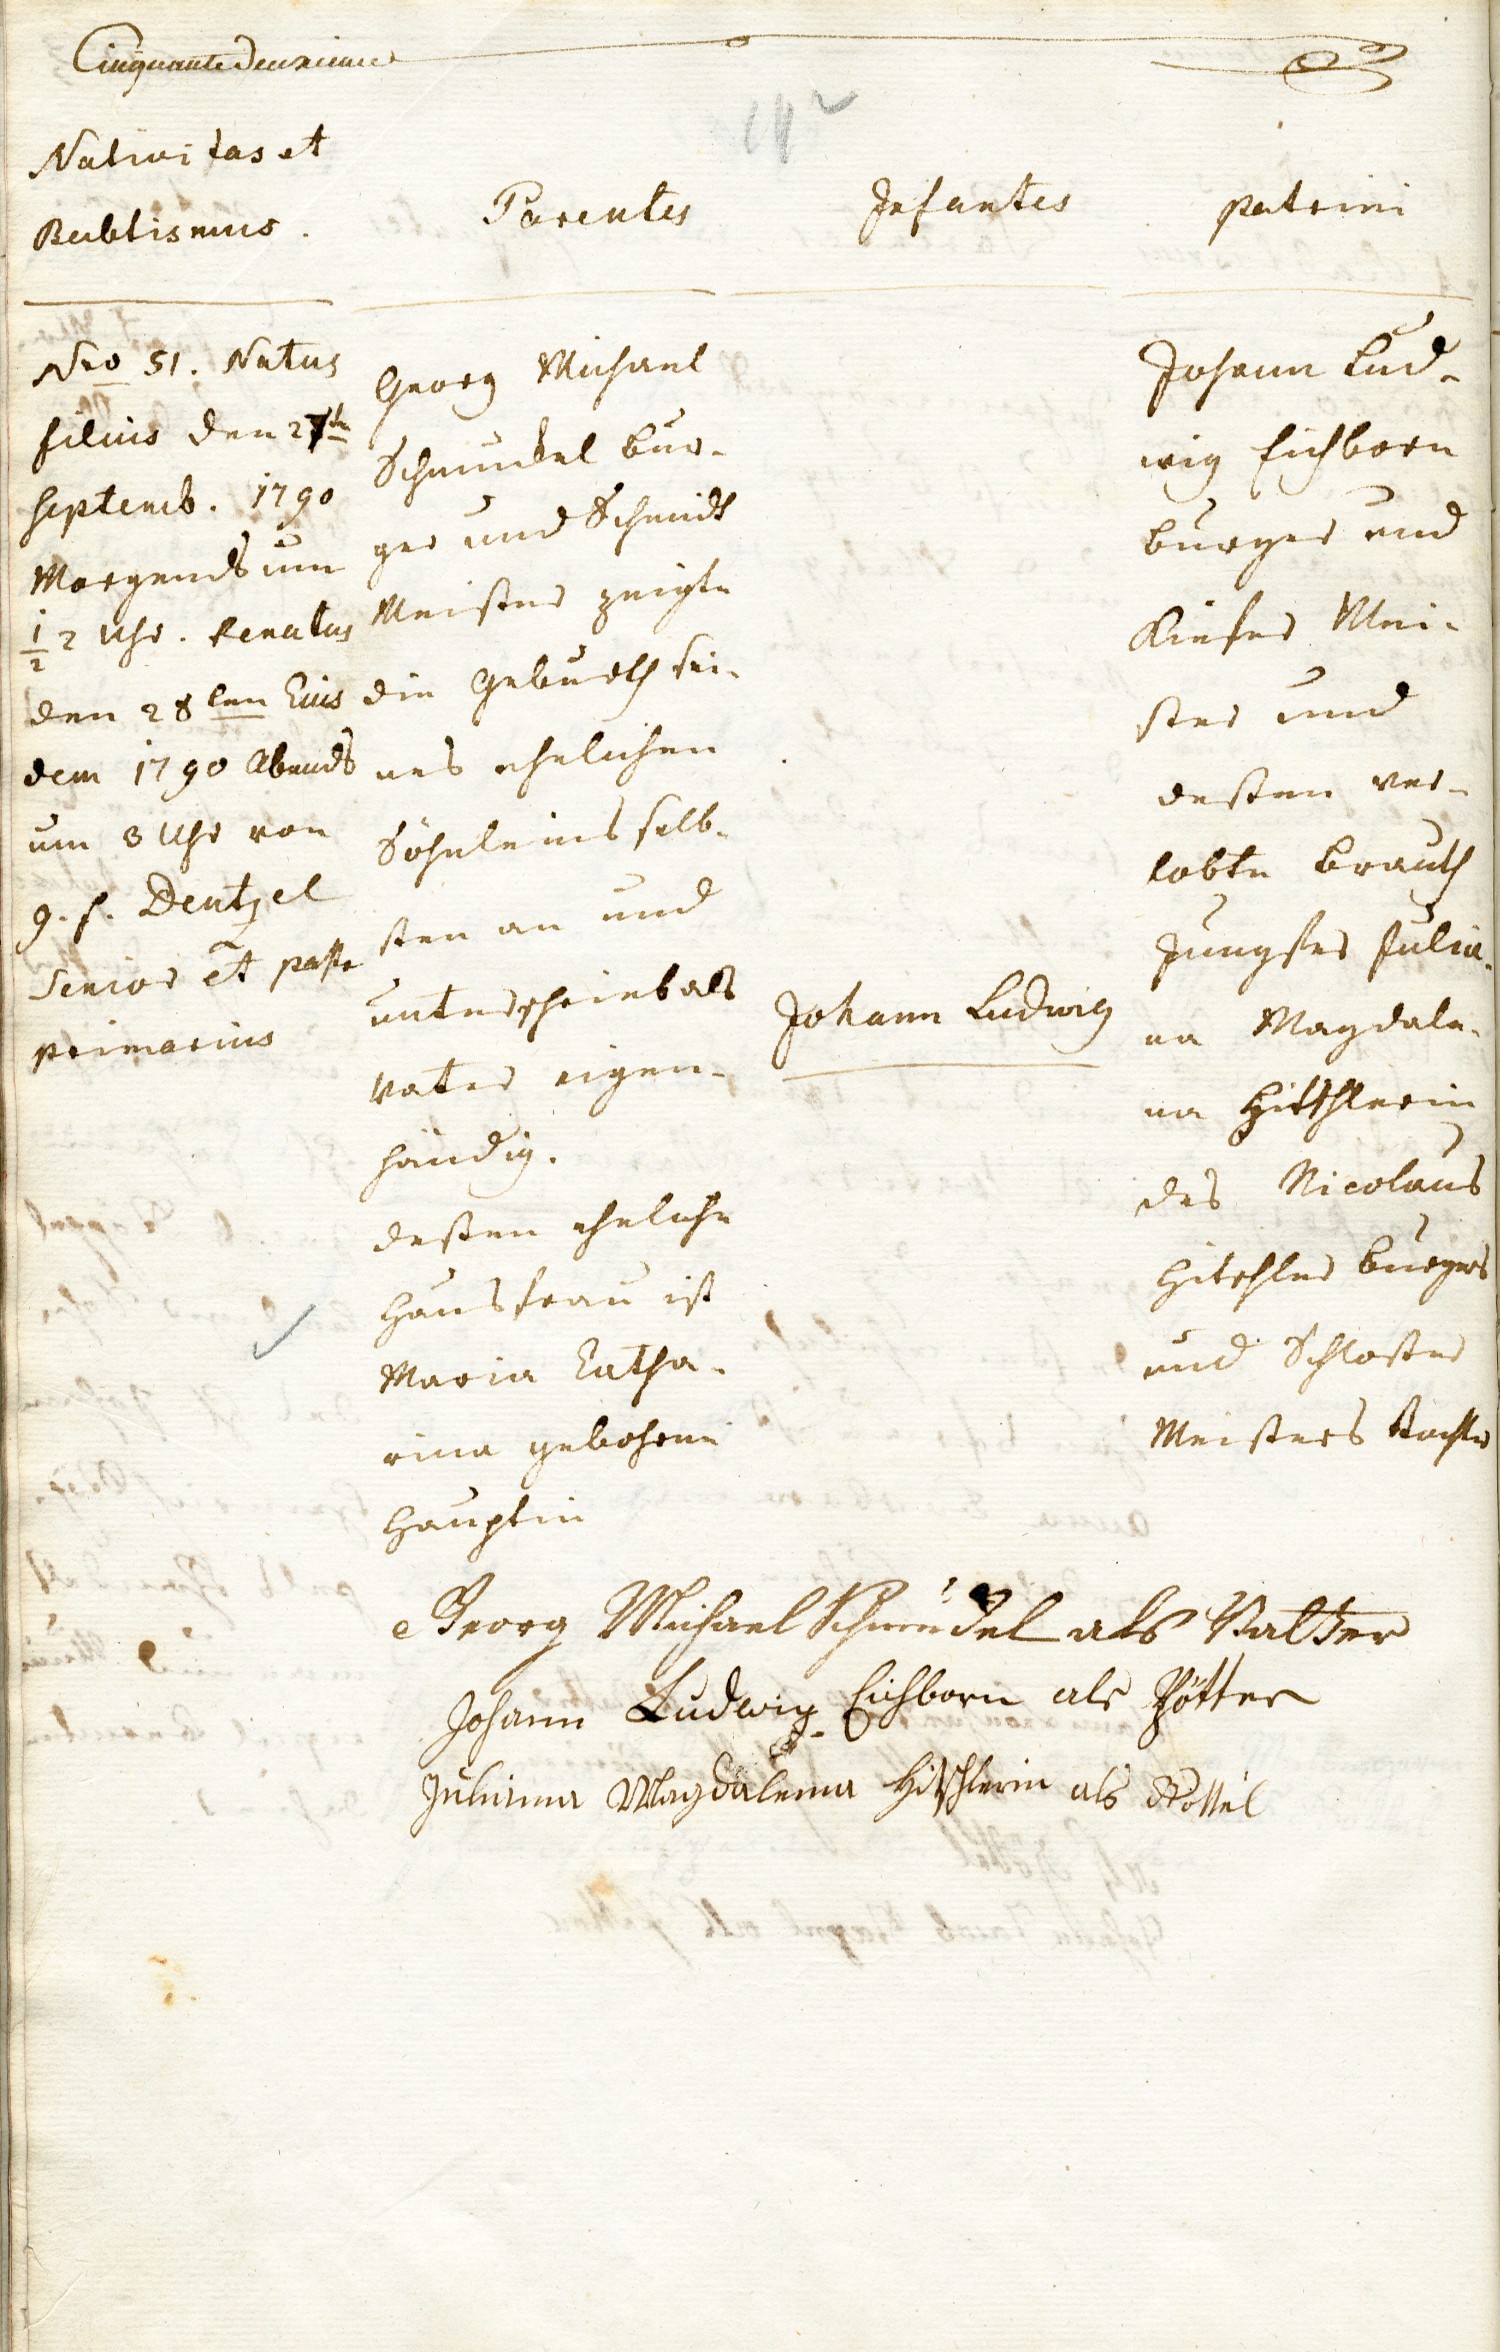 Cinquante Deuxieme
Nativitas et
Babtismus.
Parentes
Infantes
Patrini
Nro 51. Natus
filius den 27ten
Septemb. 1790
Morgends um
1/2 2 Uhr. Renatus
den 28ten Eius
dem 1790 Abends
um 3 Uhr von
g. f. Dentzel
Senior et past.
primarius
Georg Michael
Schmudel bur-
ger und Schmidt
Meister zeigte
die Geburth sei-
nes ehelichen
Söhnleins selb-
sten an und
unterschreibt als
Vater eigen-
händig.
dessen eheliche
Hausfrau ist
Maria Catha-
rina gebohrne
Hauptin
Johann Ludwig
Johann Lud-
wig Eichborn
burger und
Kiefer Mei-
ster und
dessen ver-
lobte Brauth
Jungfer Julia-
na Magdale-
na Hitschlerin
des Nicolaus
Hitschler burgers
und Schlosser
Meisters Tochter
Georg Michael Schmudel als Vatter
Johann Ludwig Eichborn als Pötter
Julianna Magdalena Hitschlerin als Göttel